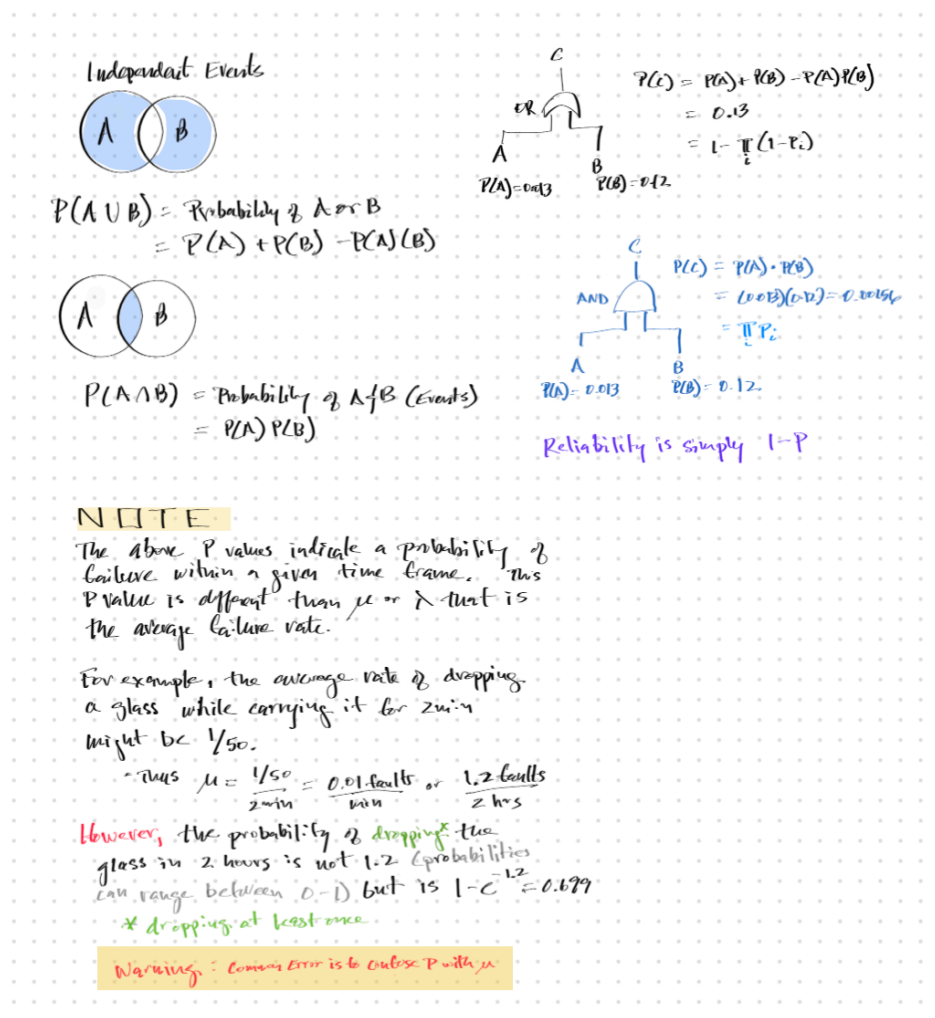 Independent Events
A B
P(A ∪ B) = Probability of A or B
= P(A) + P(B) - P(A)(B)
A B
P(A ∩ B) = Probability of A & B (Events)
= P(A) P(B)
C
OR
A
B
P(A) = 0.013
P(B) = 0.12
P(C) = P(A) + P(B) - P(A)P(B)
= 0.13
= 1 - π (1 - Pi)
i
C
AND
A
B
P(A) = 0.013
P(B) = 0.12
P(C) = P(A) · P(B)
= (0.013)(0.12) = 0.00156
= π Pi
i
Reliability is simply 1-P
NOTE
The above P values indicate a probability of
failure within a given time frame. This
P value is different than μ or λ that is
the average failure rate.
For example, the average rate of dropping
a glass while carrying it for 2min
might be 1/50.
· Thus μ = 1/50 / 2min = 0.01 faults / min or 1.2 faults / 2 hrs
However, the probability of dropping* the
glass in 2 hours is not 1.2 (probabilities
can range between 0-1) but is 1-e^-1.2 = 0.699
* dropping at least once
Warning: Common Error is to confuse P with μ